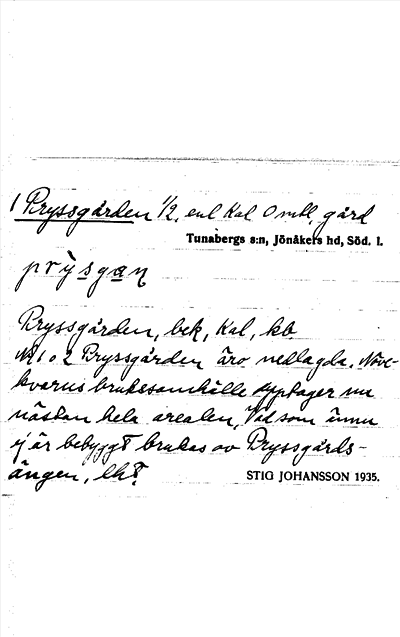 1 Pryssgården 1/2, enl Kal Omtl, gård
Tunabergs s:n, Jönåkers hd, Söd. l.
prỳsgaṇ
Pryssgården, bek, Kal, kb.
No 1 o 2 Pryssgården äro nedlagda. Näve-
kvarns brukssamhälle upptager nu
nästan hela arealen, Vad som ännu
ej är bebyggt brukas av Pryssgårds-
ängen, lht.
STIG JOHANSSON 1935.